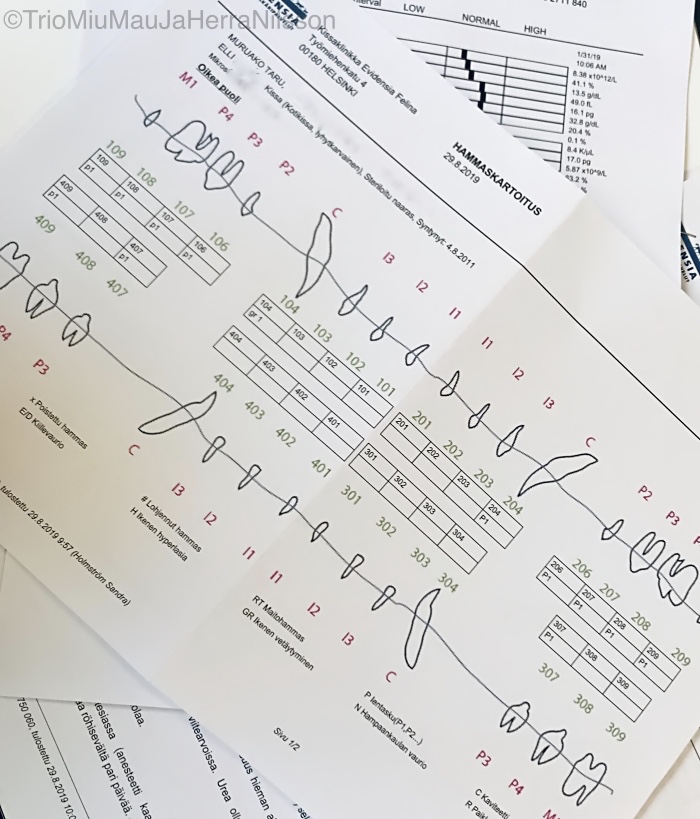 ©TrioMiuMauJaHerraNilsson
LOW
NORMAL
HIGH
1/31/19
10:06 AM
8.38 x10^12/L
41.1 %
13.5 g/dL
49.0 fL
16.1 pg
32.8 g/dL
20.4 %
0.1 %
8.4 K/uL
17.0 pg
5.87 x10^9/L
Kissaklinikka Evidensia Felina
Työmiehenkatu 4
00180 HELSINKI
MURUAKO TARU,
ELLI
Kissa (Kotikissa, lyhytkarvainen), Steriloitu naaras, Syntynyt: 4.8.2011
Oikea puoli
HAMMASKARTOITUS
29.8.2019
M1 P4 P3 P2 C I3 I2 I1 I1 I2 I3 C P2 P3
109 108 107 106
109 108 107 106
p1 p1 p1 p1
409 408 407
p1 p1
409 408 407
104 103 102 101
104 103 102 101
gr 1
404 403 402 401
404 403 402 401
201 202 203 204
201 202 203 204
P1
301 302 303 304
301 302 303 304
206 207 208 209
206 207 208 209
P1 P1 P1 P1
307 308 309
307 308 309
P4 P3 C I3 I2 I1 I1 I2 I3 C P3 P4
x Poistettu hammas
E/D Kiillevaurio
# Lohjennut hammas
H Ikenen hyperlasia
RT Maitohammas
GR Ikenen vetäytyminen
P Ientasku(P1,P2...)
N Hampaankaulan vaurio
C Kavitteetti
tulostettu 29.8.2019 9:57 (Holmström Sandra)
Sivu 1/2
750 060, tulostettu 29.8.2019
röhisevältä pari päivää.
(anesteetti
viitearvoissa. Urea
hieman